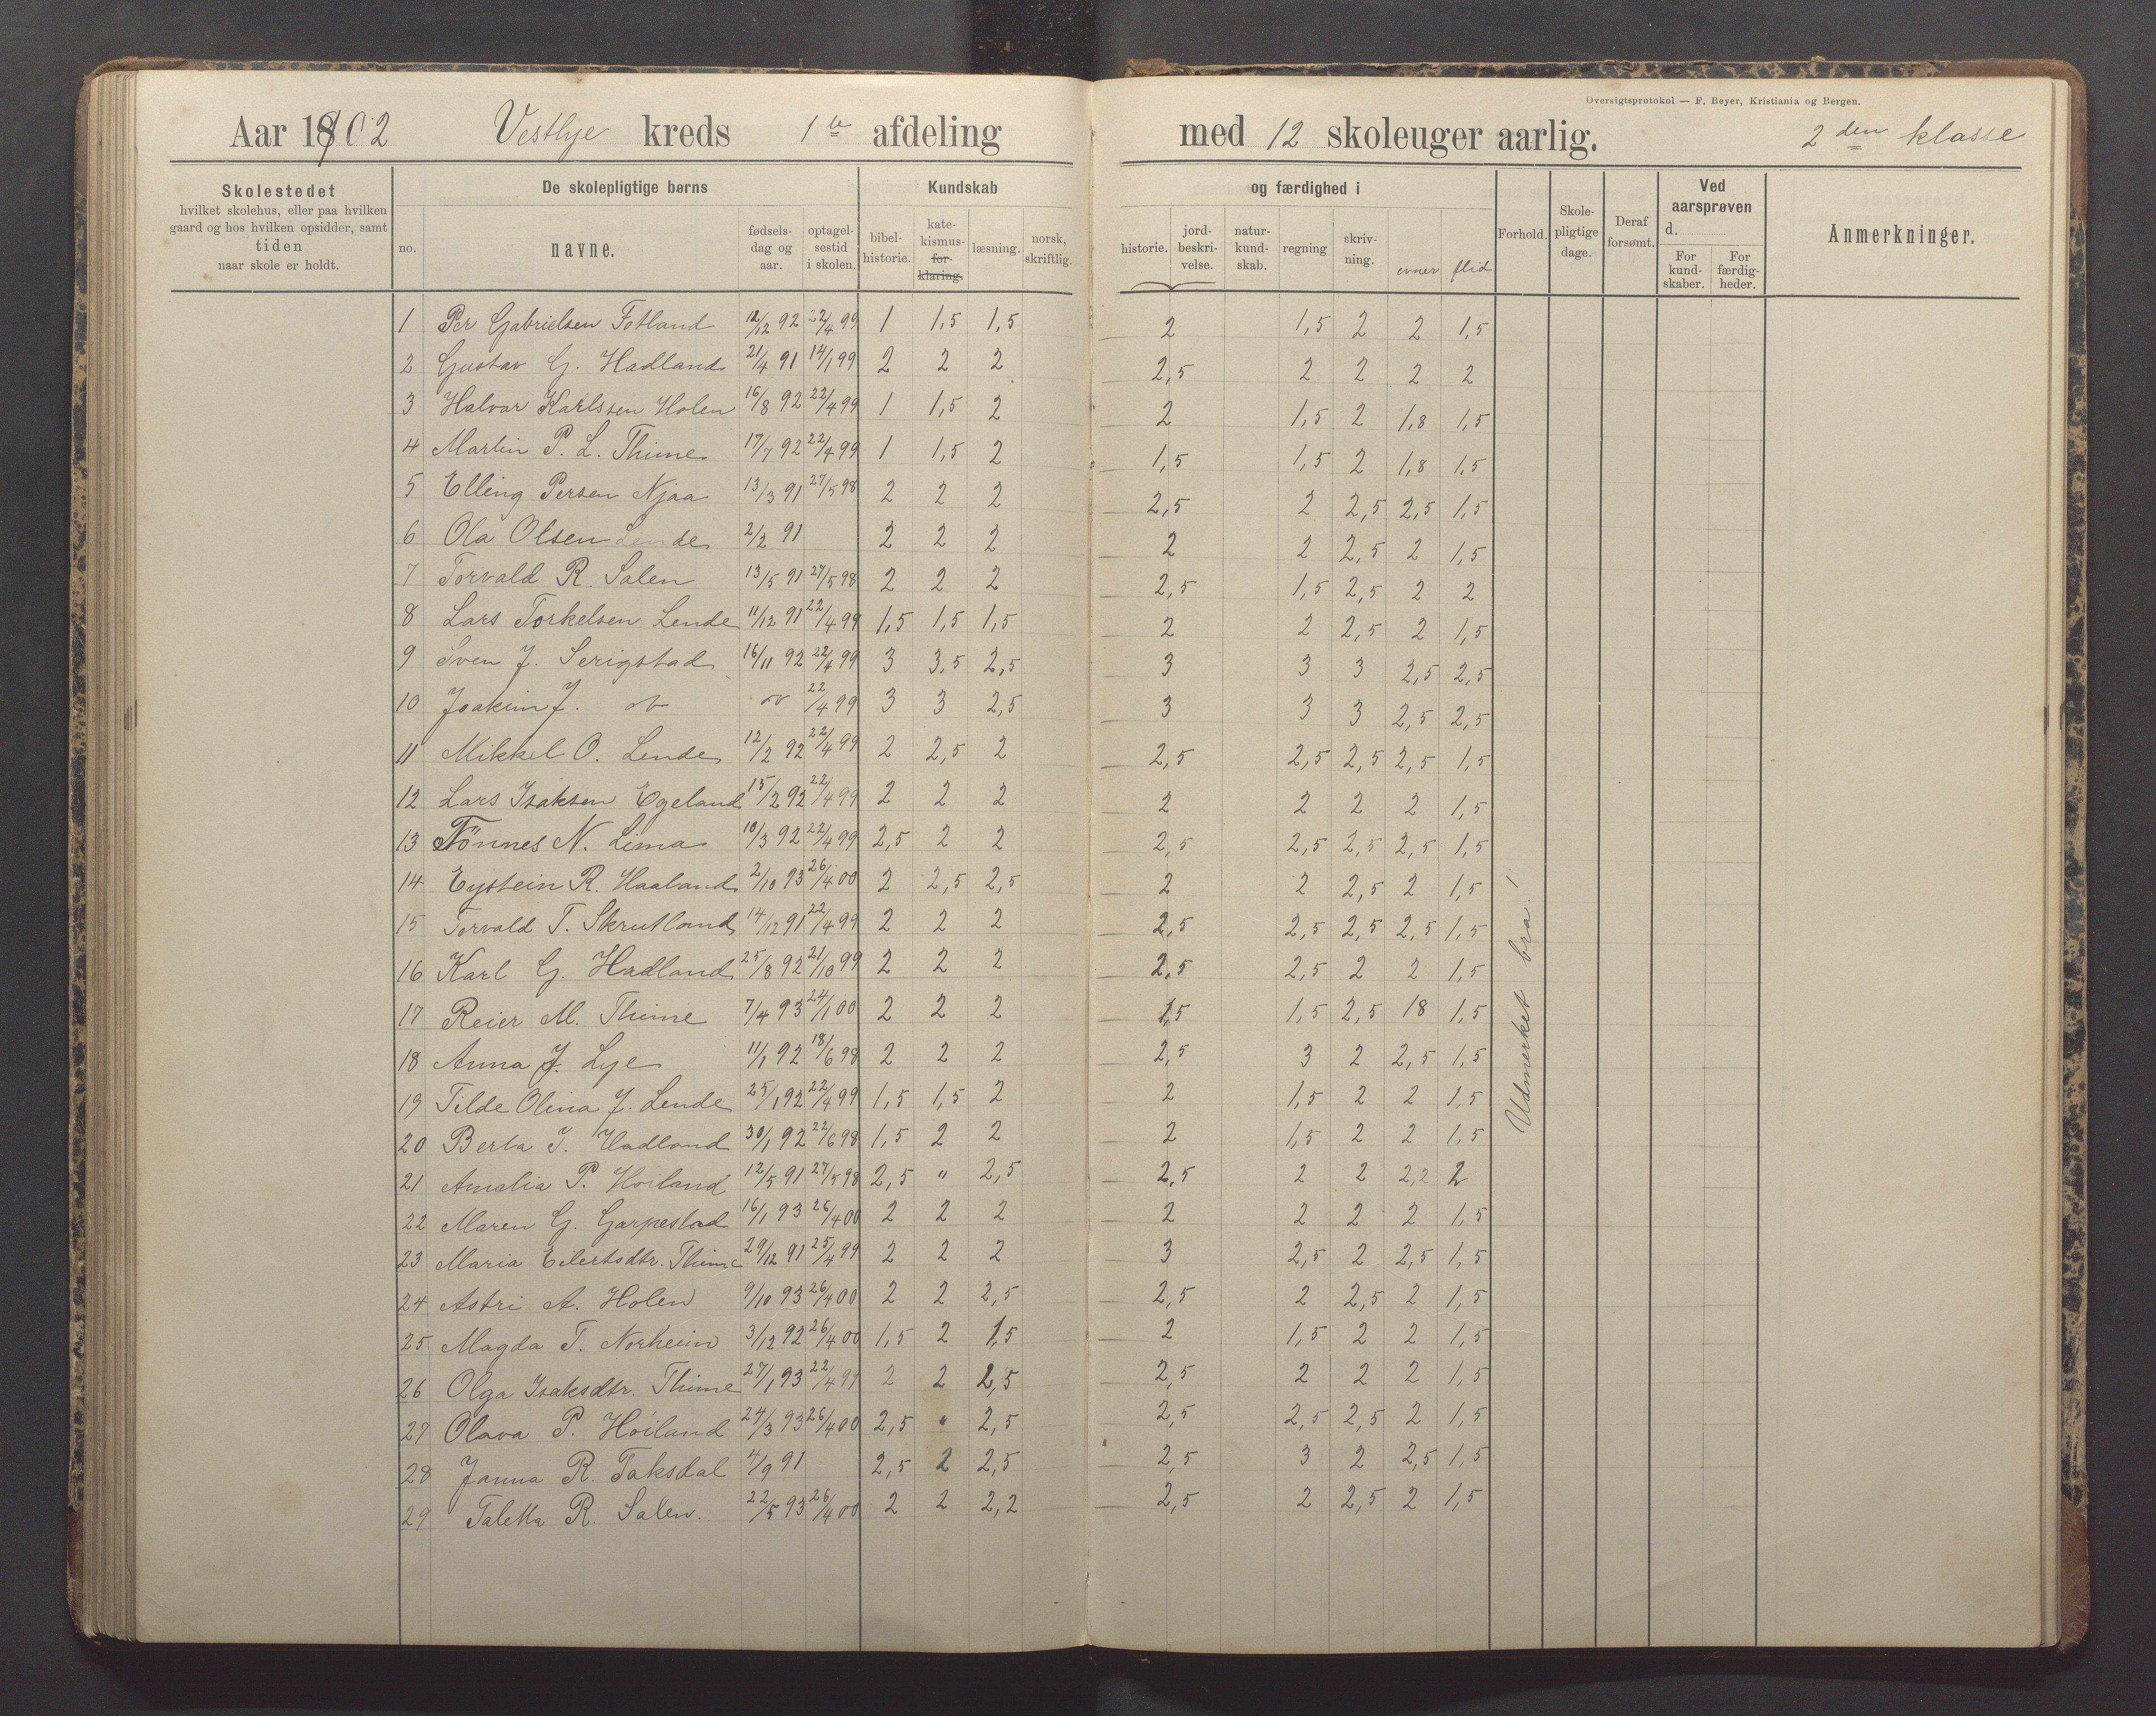 Oversigtsprotokol — F. Beyer, Kristiania og Bergen.
Aar 1902 Vestlye kreds 1ste afdeling med 12 skoleuger aarlig. 2den klasse
Skolestedet
hvilket skolehus, eller paa hvilken
gaard og hos hvilken opsidder, samt
tiden
naar skole er holdt.
De skolepligtige børns
no. navne. fødsels-dag og aar. optagel-sestid i skolen.
Kundskab og færdighed i
bibel-historie. kate-kismus-for-klaring. læsning. norsk, skriftlig. historie. jord-beskri-velse. natur-kund-skab. regning skriv-ning. evner flid
Forhold. Skole-pligtige dage. Deraf forsømt.
Ved aarsprøven d.
For kund-skaber. For færdig-heder.
Anmerkninger.
1 Per Gabrielsen Fotland 12/12 92 22/4 99 1 1,5 1,5 2 1,5 2 2 1,5
2 Gustav G. Hadland 21/4 91 14/1 99 2 2 2 2,5 2 2 2 2
3 Halvar Karlssen Holen 16/8 92 22/4 99 1 1,5 2 2 1,5 2 1,8 1,5
4 Martin P. L. Thime 17/7 92 22/4 99 1 1,5 2 1,5 1,5 2 1,8 1,5
5 Elling Persen Njaa 13/3 91 27/5 98 2 2 2 2,5 2 2,5 2,5 1,5
6 Ola Olsen Lende 2/2 91 2 2 2 2 2 2,5 2 1,5
7 Torvald R. Salen 13/5 91 27/5 98 2 2 2 2,5 1,5 2,5 2 2
8 Lars Torkelsen Lende 11/12 91 22/4 99 1,5 1,5 1,5 2 2 2,5 2 1,5
9 Sven J. Serigstad 16/11 92 22/4 99 3 3,5 2,5 3 3 3 2,5 2,5
10 Joakim J. 22/4 99 3 3 2,5 3 3 3 2,5 2,5
11 Mikkel O. Lende 12/2 92 22/4 99 2 2,5 2 2,5 2,5 2,5 2,5 1,5
12 Lars Isaksen Egeland 15/2 92 22/4 99 2 2 2 2 2 2 2 1,5
13 Tönnes N. Lima 10/3 92 22/4 99 2,5 2 2 2,5 2,5 2,5 2,5 1,5
14 Eystein R. Haaland 2/10 93 26/4 00 2 2,5 2,5 2 2 2,5 2 1,5
15 Torvald T. Skrutland 14/12 91 22/4 99 2 2 2 2,5 2,5 2,5 2,5 1,5
16 Karl G. Hadland 25/8 92 21/10 99 2 2 2 2,5 2,5 2 2 1,5
17 Reier M. Thime 7/4 93 24/1 00 2 2 2 1,5 1,5 2,5 18 1,5
18 Anna J. Lye 11/1 92 18/6 98 2 2 2 2,5 3 2 2,5 1,5
19 Tilde Olina J. Lende 25/1 92 22/4 99 1,5 1,5 2 2 1,5 2 2 1,5
20 Berta J. Hadland 30/1 92 22/6 98 1,5 2 2 2 1,5 2 2 1,5
21 Amalia P. Hoiland 12/5 91 27/5 98 2,5 " 2,5 2,5 2 2 2,2 2
22 Maren G. Garpestad 16/1 93 26/4 00 2 2 2 2 2 2 2 1,5
23 Maria Eilertsdtr. Thime 29/12 91 25/4 99 2 2 2 3 2,5 2 2,5 1,5
24 Astri A. Holen 9/10 93 26/4 00 2 2 2,5 2,5 2 2,5 2 1,5
25 Magda T. Norheim 3/12 92 26/4 00 1,5 2 1,5 2 1,5 2 2 1,5
26 Olga Isaksdtr. Thime 27/1 93 22/4 99 2 2 2,5 2,5 2 2 2 1,5
27 Olava P. Hoiland 24/3 93 26/4 00 2,5 " 2,5 2,5 2,5 2,5 2 1,5
28 Janna R. Taksdal 4/9 91 2,5 2 2,5 2,5 3 2 2,5 1,5
29 Taletta R. Salen. 22/5 93 26/4 00 2 2 2,2 2,5 2 2,5 2 1,5
Udmerket bra!